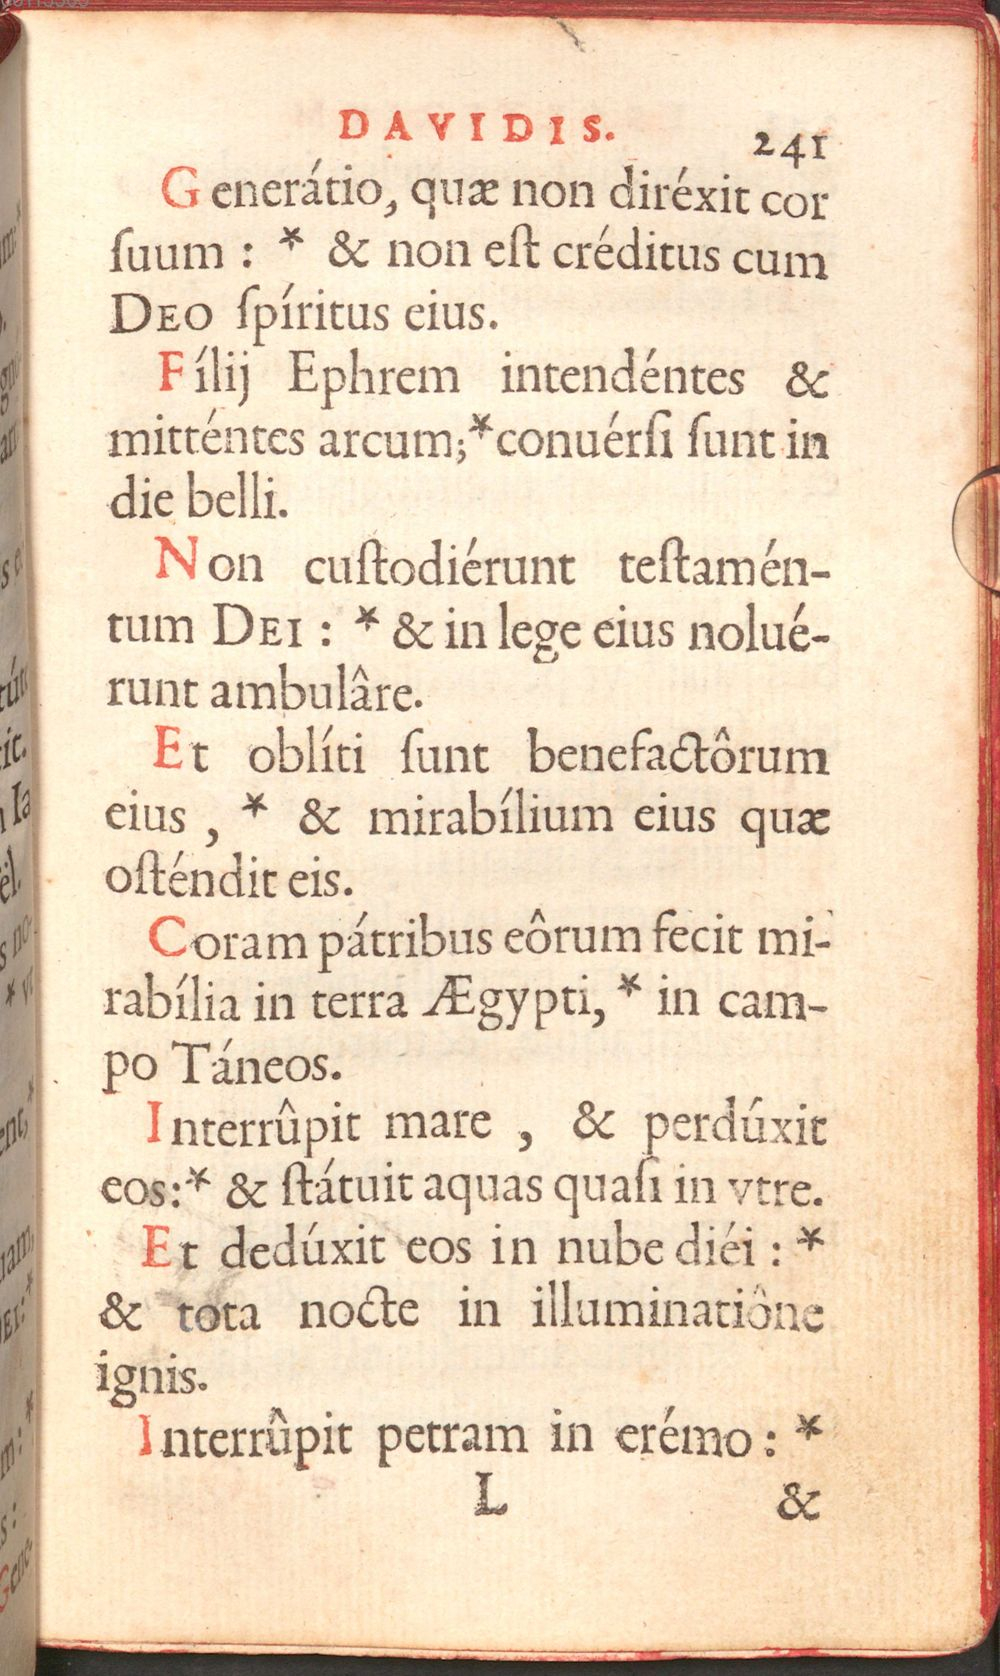 DAVIDIS. 241
Generátio, quæ non diréxit cor
ſuum : * & non eſt créditus cum
DEO ſpíritus eius.
Fílij Ephrem intendéntes &
mitténtes arcum;* conuérſi ſunt in
die belli.
Non cuſtodiérunt teſtamén-
tum DEI : * & in lege eius nolué-
runt ambulâre.
Et oblíti ſunt benefactôrum
eius , * & mirabílium eius quæ
oſténdit eis.
Coram pátribus eôrum fecit mi-
rabília in terra Ægypti, * in cam-
po Táneos.
Interrûpit mare , & perdúxit
eos:* & ſtátuit aquas quaſi in vtre.
Et dedúxit eos in nube diéi : *
& tota nocte in illuminatiône
ignis.
Interrûpit petram in erémo : *
L &